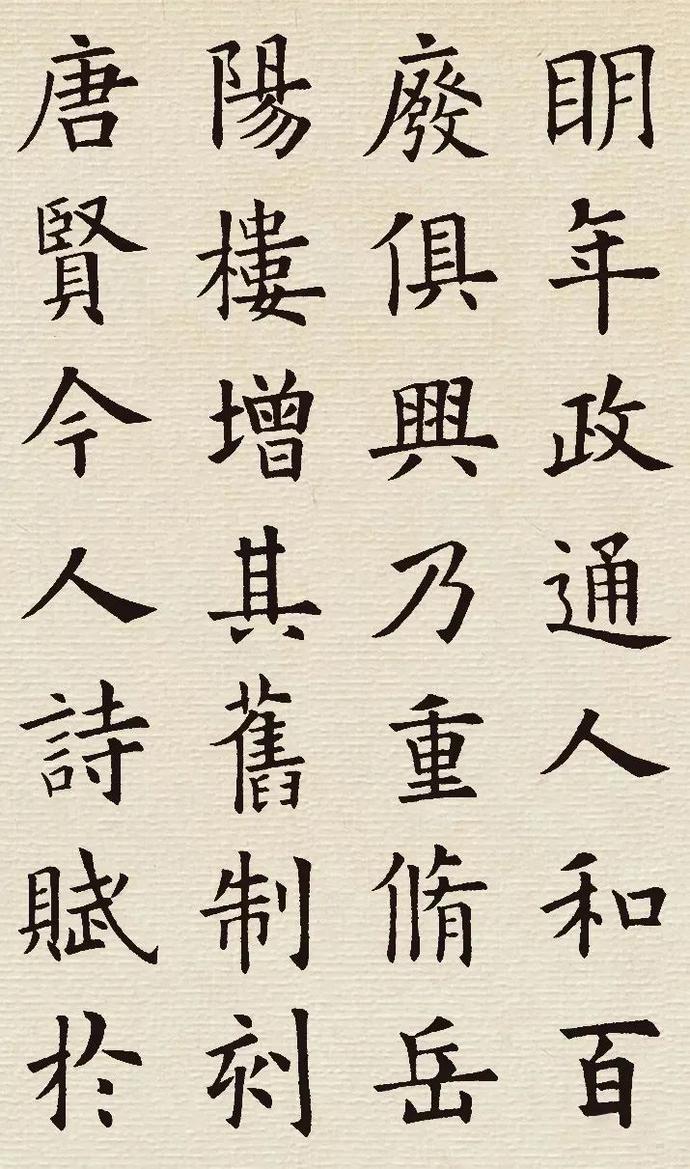 眀年政通人和百
廢俱興乃重脩岳
陽樓增其舊制刻
唐賢今人詩賦於